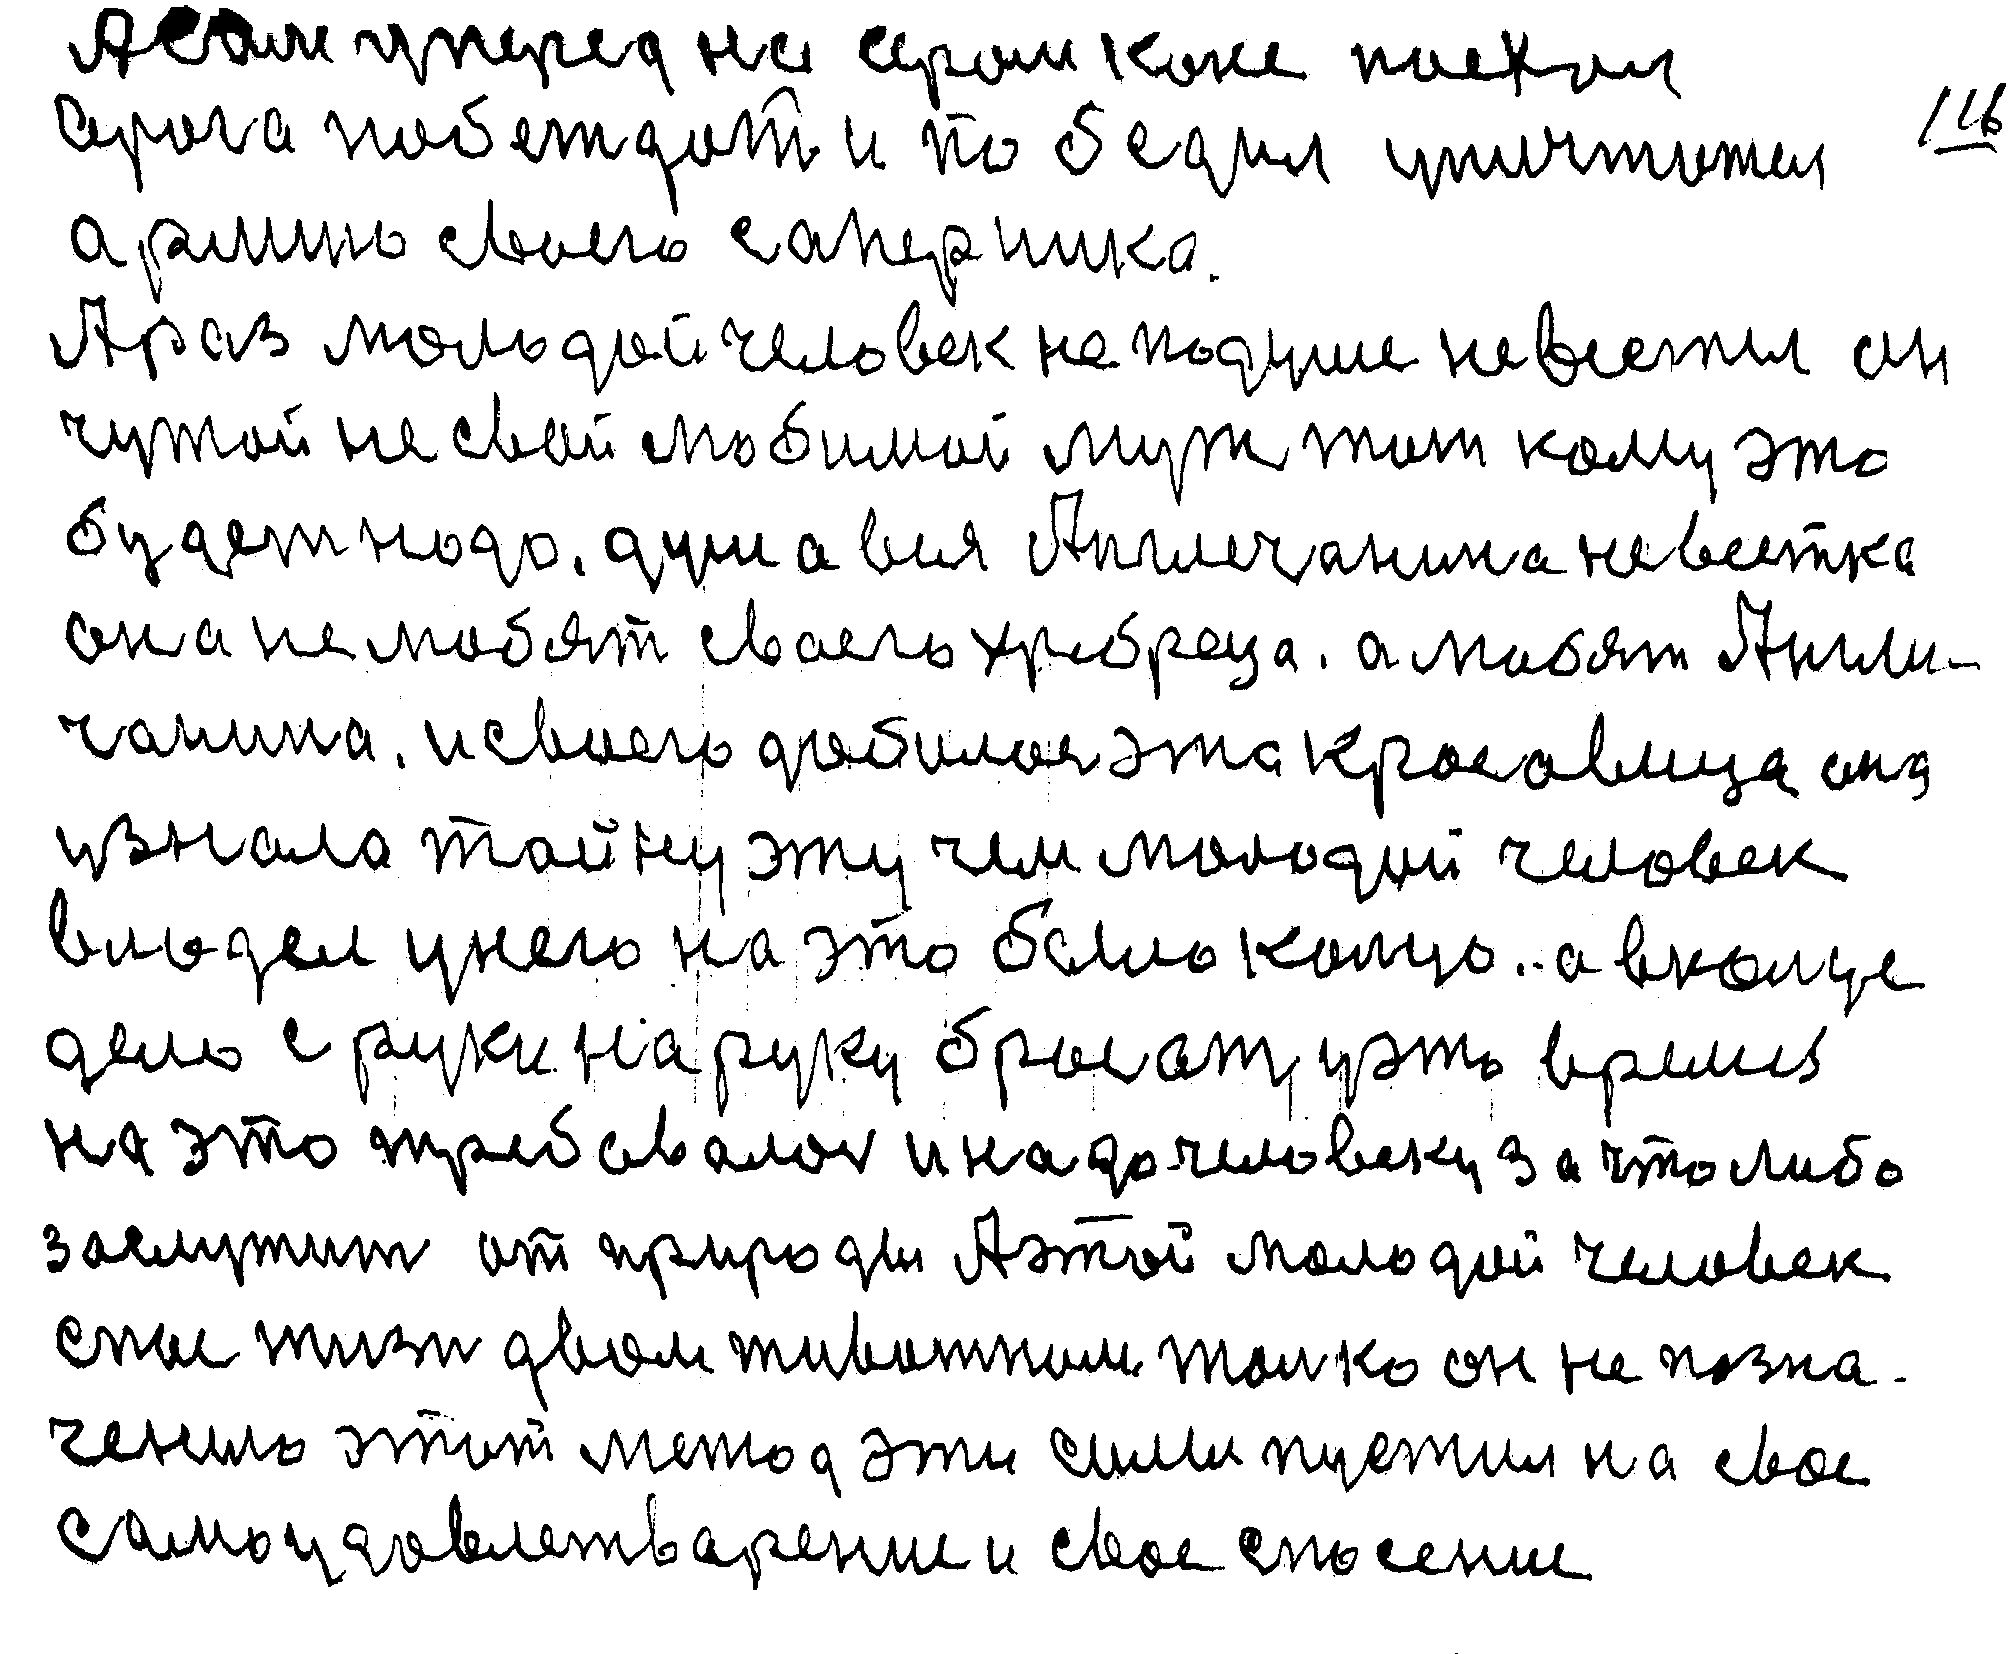 А сам уперед на сером коне поехал
врога побеждат и по бедил уничтожел
армию своего саперника.
А раз молодой человек не подуше невестил он
чужой не свой любимой муж том кому это
будет надо. душа вся Англечанина невестка
она не любят сваего хребреца. а любят Англи-
чанина. и своего добилая эта красавица она
узнала тайну эту чем молодой человек
владел у него на это было колцо.. а в колце
дело с руки на руку бросат, у это время
на это требовалос и надо человеку за что либо
заслужит от природы А этой молодой человек
спас жизн двом животном толко он не позна-
чению этот метод эти силы пустил на свое
самоудовлетварение и свое спосение